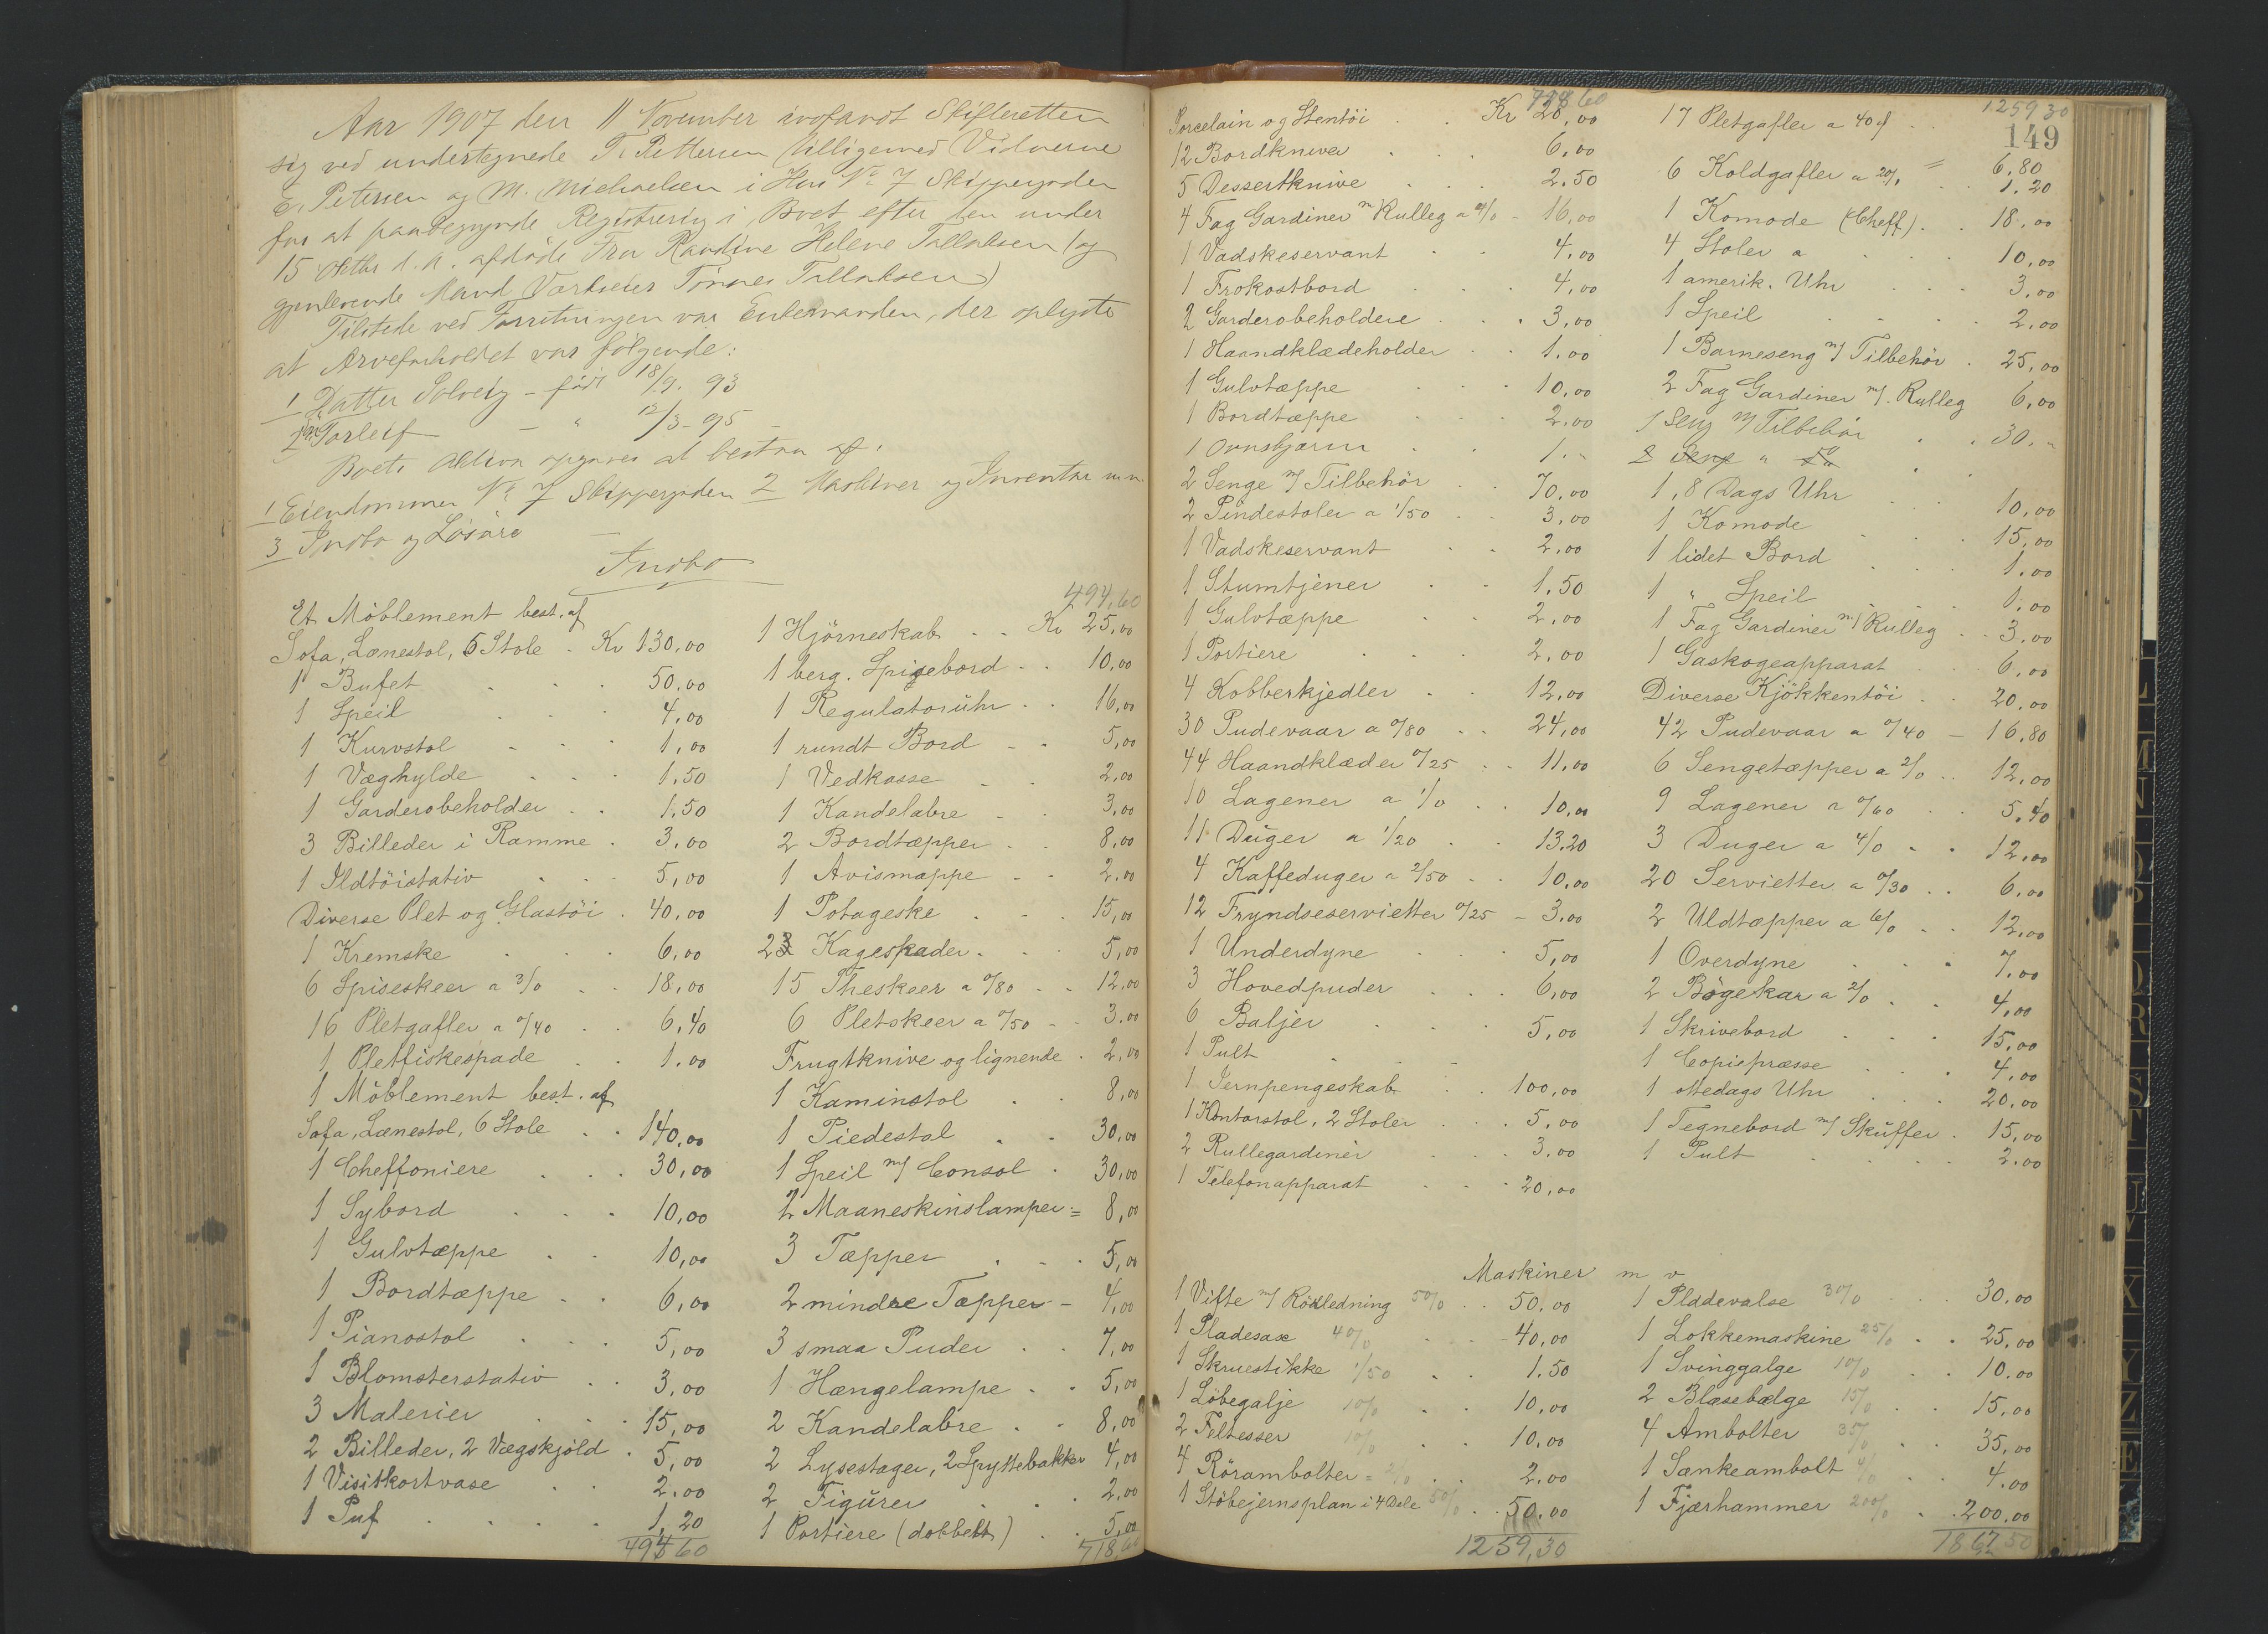 Aar 1907 den 11 November indfandt Skifteretten
sig ved undertegnede T. Pettersen tilligemed Vidnerne
E. Petersen og M. Michaelsen i Hus No 7 Skippergaden
for at paabegynde Registrering i Boet efter den under
15 Oktbr d. A. afdøde Fru Randine Helene Tallaksen (og
gjenlevende Mand Værkseier Tønnes Tallaksen)
Tilstede ved Forretningen var Enkemanden, der oplyste
at Arveforholdet var følgende:
1 Datter Solveig - født 18/9. 93
2 Sön Torleif - " 12/3 - 95 -
Boets Aktiva opgaves at bestaa af:
1 Eiendommen No 7 Skippergaden 2 Maskiner og Inventar m. m.
3 Indbo og Løsøre
Indbo
Et Möblement best. af
Sofa, Lænestol, 5 Stole . Kr 130,00
1 Bufet 50,00
1 Speil 4,00
1 Kurvstol 1,00
1 Væghylde 1,50
1 Garderobeholder 1,50
3 Billeder i Ramme 3,00
1 Ildtöistativ 5,00
Diverse Plet og Glastöi 40,00
1 Kremske 6,00
6 Spiseskeer a 3/0 18,00
16 Pletgafler a 0/40 6,40
1 Pletfiskespade 1.00
1 Möblement best. af
Sofa, Lænestol, 6 Stole 140,00
1 Cheffoniere 30,00
1 Sybord 10,00
1 Gulvtæppe 10,00
1 Bordtæppe 6,00
1 Pianostol 5,00
1 Blomsterstativ 3,00
3 Malerier 15,00
2 Billeder, 2 Vægskjold 5,00
1 Visitkortvase 2.00
1 Puf 1,20
494 60
494,60
1 Hjörneskab Kr 25,00
1 berg. Spisebord 10,00
1 Regulatorühr 16,00
1 rundt Bord 5,00
1 Vedkasse 2,00
1 Kandelabre 3,00
2 Bordtæpper 8,00
1 Avismappe 2,00
1 Potageske 15,00
2 Kagespader 5,00
15 Theskeer a 0/80 12,00
6 Pletskeer a 0/50 3.00
Frugtknive og lignende 2,00
1 Kaminstol 8,00
1 Piedestal 30,00
1 Speil m/ Consol 30,00
2 Maaneskinslamper = 8,00
3 Tæpper 5,00
2 mindre Tæpper - 4,00
3 smaa Puder 7,00
1 Hængelampe 5,00
2 Kandelabre 8,00
2 Lysestager, 2 Spyttebakker 4,00
2 Figürer 2,00
1 Portiere (dobbelt) 5,00
718,60
718 60
Porcelain og Stentöi Kr 20,00
12 Bordkniver 6,00
5 Dessertknive 2.50
4 Fag Gardiner m/ Rulleg a 4/0 - 16,00
1 Vadskeservant 4,00
1 Frokostbord 4,00
2 Garderobeholdere 3,00
1 Haandklædeholder 1.00
1 Gulvtæppe 10,00
1 Bordtæppe 2.00
1 Ovnsskjærm 1.-
2 Senge m/ Tilbehör 70,00
2 Pindestoler a 1/50 3,00
1 Vadskeservant 2,00
1 Stumtjener 1.50
1 Gulvtæppe 2,00
1 Portiere 2,00
4 Kobberkjedler 12,00
30 Pudevaar a 0/80 24,00
44 Haandklæder 0/25 11,00
10 Lagener a 1/0 10,00
11 Düger a 1/20 13.20
4 Kaffeduger a 2/50 10,00
12 Fryndseservietter 0/25 - 3.00
1 Underdyne 5,00
3 Hovedpuder 6,00
6 Baljer 5,00
1 Pult
1 Jernpengeskab 100,00
1 Kontorstol, 2 Stoler 5,00
2 Rullegardiner 3,00
1 Telefonapparat 20,00
1259 30
149
17 Pletgafler a 40 ø = 6,80
6 Koldgafler a 20/. 1.20
1 Komode (Cheff.) 18,00
4 Stoler a 10,00
1 amerik. Uhr 3,00
1 Speil 2,00
1 Barneseng m/ Tilbehör 25,00
2 Fag Gardiner m/. Rulleg 6,00
1 Seng m/ Tilbehör 30.-
2 Seng " do
1, 8 Dags Uhr 10,00
1 Komode 15,00
1 lidet Bord 1.00
1 " Speil 1.00
1 Fag Gardiner m/ Rulleg 3,00
1 Gaskogeapparat 6,00
Diverse Kjökkentöi 20,00
42 Pudevaar a 0/40 - 16,80
6 Sengetæpper a 2/0 12,00
9 Lagener a 0/60 5,40
3 Duger a 4/0 12,00
20 Servietter a 0/30 6,00
2 Uldtæpper a 6/0 12,00
1 Overdyne 7.00
2 Bøgekar a 2/0 4,00
1 Skrivebord 15,00
1 Copiepræsse 4,00
1 ottedags Uhr 20,00
1 Tegnebord m/ Sküffer 15,00
1 Pult 2.00
Maskiner m v
1 Vifte m/ Rörledning 50/0 50,00
1 Pladesax 40/0 40,00
1 Skruestikke 1/50 1.50
1 Löbegalje 10/0 10,00
2 Feltesser 10/0 10.00
4 Rörambolter = 2/0 2.00
1 Stöbejernsplan i 4 Dele 50/0 50.00
1259,30
1 Pladevalse 30/0 30.00
1 Lokkemaskine 25/0 25,00
1 Svinggalge 10/0 10.00
2 Blæsebælge 15/0 15,00
4 Ambolter 35/0 35,00
1 Sænkeambolt 4/0 4.00
1 Fjærhammer 200/0 200,00
1867 50